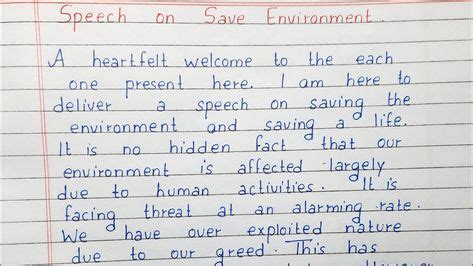 Speech on Save Environment.
A heartfelt welcome to the each
one present here. I am here to
deliver a speech on saving the
environment and saving a life.
It is no hidden fact that our
environment is affected largely
due to human activities. It is
facing threat at an alarming rate.
We have over exploited nature
due to our greed. This has
However